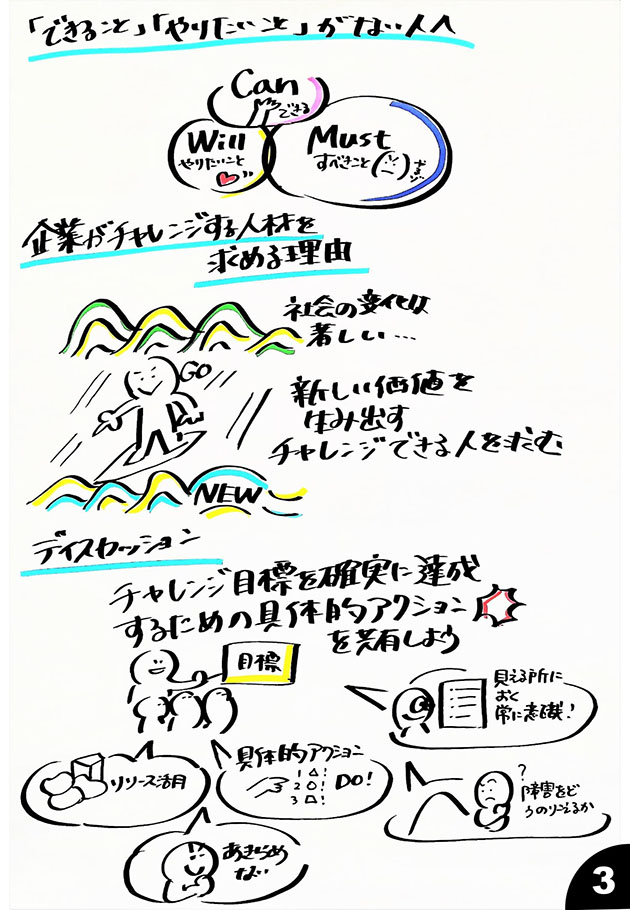 「できること」「やりたいこと」がない人へ
Can
できる
Will
やりたいこと
Must
すべきこと
企業がチャレンジする人材を
求める理由
社会の変化は
著しい…
GO
新しい価値を
生み出す
チャレンジできる人を求む
NEW
ディスカッション
チャレンジ目標を確実に達成
するための具体的アクション
を共有しよう
目標
見える所に
おく
常に意識!
リソース活用
具体的アクション
1 △!
2 ○!
3 □!
DO!
?
障害をど
うのりこえるか
あきらめ
ない
3